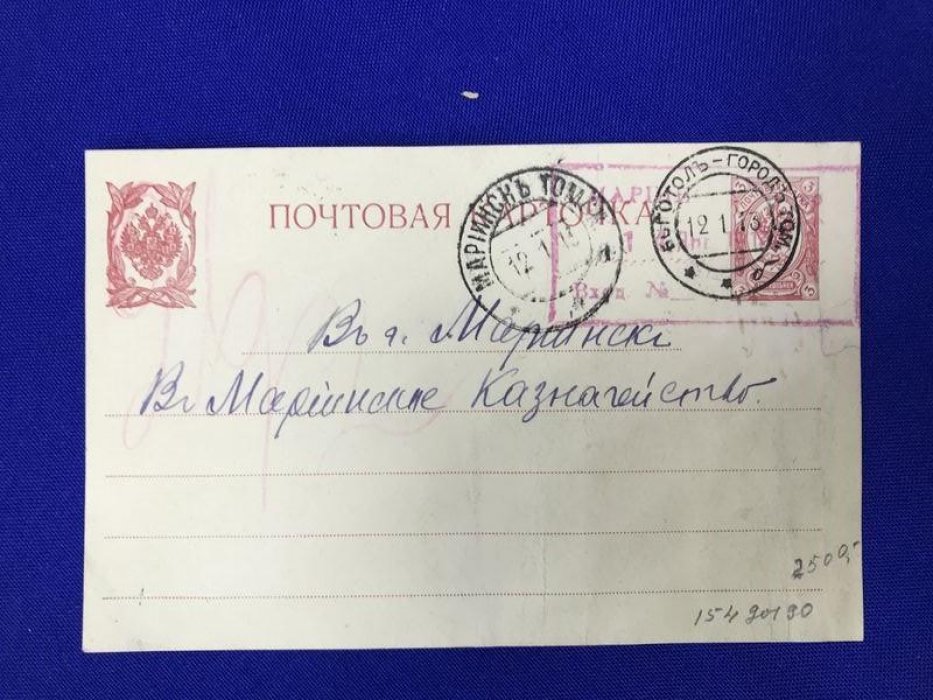 ПОЧТОВАЯ КАРТОЧКА
МАРІИНСКЪ ТОМСК.
12.1.13
БОГОТОЛЪ-ГОРОДЪ ТОМ.
12.1.13
МАРІ
Вход №
3
3
Въ г. Маріинскъ
Въ Маріинское Казначейство.
2500,-
154 90190